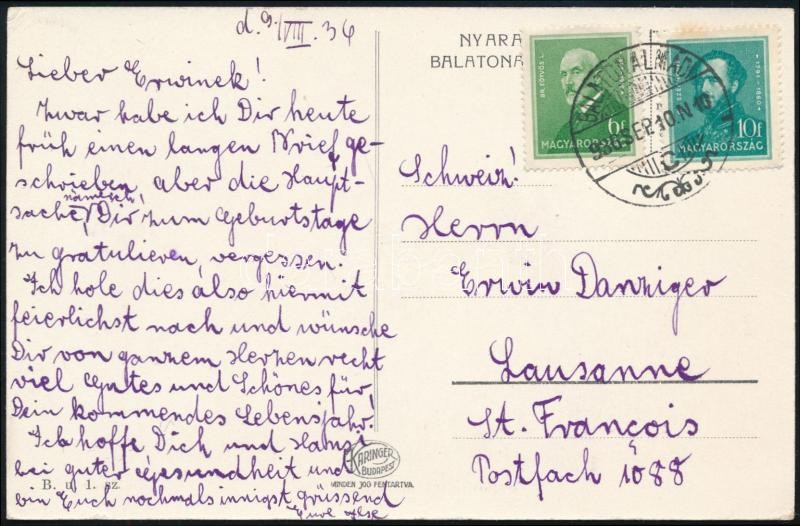 d. 9./VIII. 36
Lieber Erwinek!
Zwar habe ich Dir heute
früh einen langen Brief ge-
schrieben, aber die Haupt-
sache, nämlich! Dir zum Geburtstage
zu gratulieren, vergessen.
Ich hole dies also hiermit
feierlichst nach und wünsche
Dir von ganzem Herzen recht
viel Gutes und Schönes für
Dein kommendes Lebensjahr!
Ich hoffe Dich und Hansi
bei guter Gesundheit und
bin Euch nochmals innigst grüssend
Eure Ilse
B. u. 1. sz.
KARINGER
BUDAPEST
MINDEN JOG FENTARTVA.
NYARA
BALATONA
BR. EÖTVÖS J.
6f
MAGYARORSZÁG
1791-1860
10f
MAGYARORSZÁG
BALATONALMÁDI
936 SEP. 10. N 10
Schweiz!
Herrn
Erwin Danziger
Lausanne
St. François
Postfach 1088